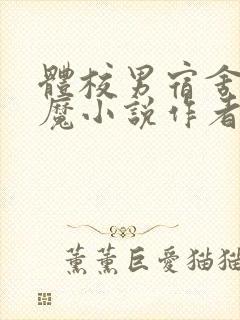 體校男宿舍
魔小說作者
薰薰巨愛猫猫